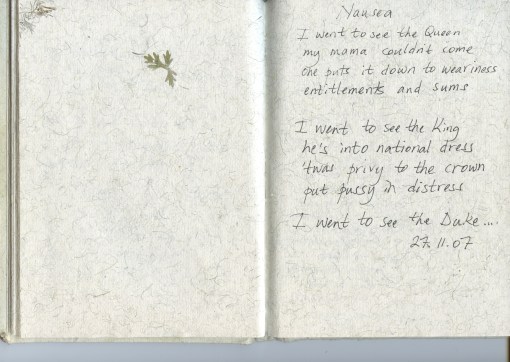 Nausea
I went to see the Queen
my mama couldn't come
she puts it down to weariness
entitlements and sums
I went to see the King
he's into national dress
'twas privy to the crown
put pussy in distress
I went to see the Duke....
27.11.07